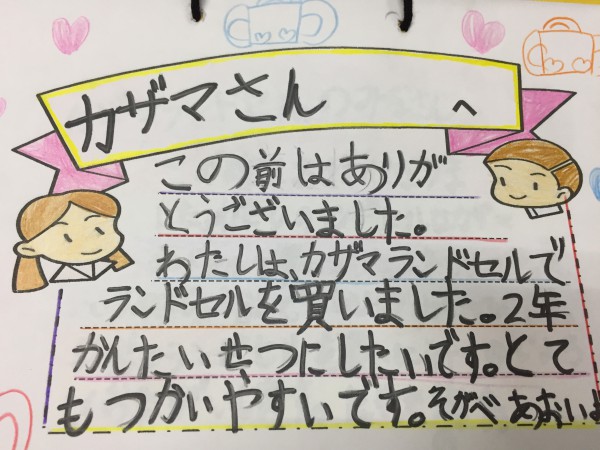 カザマさん へ
この前はありが
とうございました。
わたしは、カザマランドセルで
ランドセルを買いました。2年
かんたいせつにしたいです。とて
もつかいやすいです。そがべ あおい